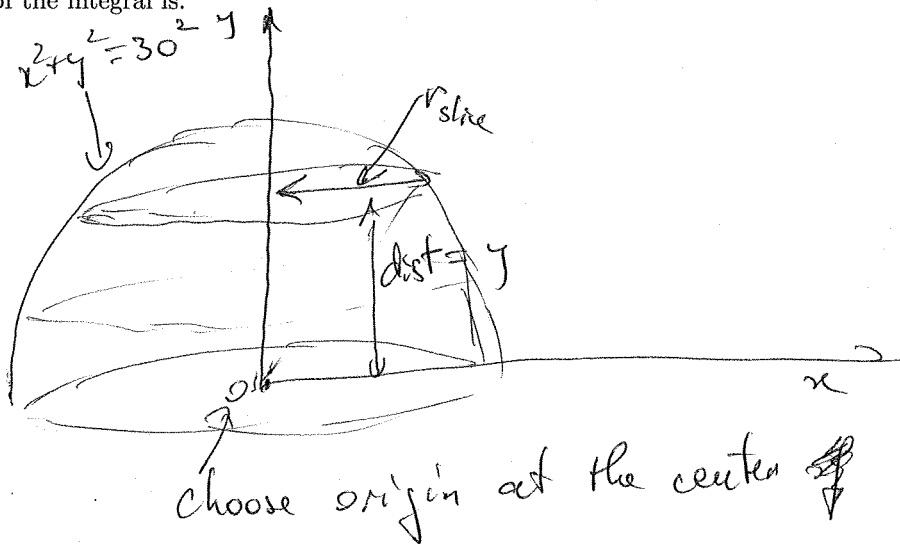 of the integral is.
x²+y²=30²
y
r slice
dist = y
0
x
choose origin at the center